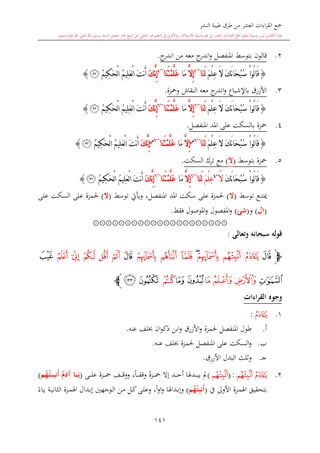 جمع القراءات العشر من طرق طيبة النشر
٢. قالون بتوسط المنفصل واندرج معه من اندرج.
﴿ قَالُوا۟ سُبْحَـٰنَكَ لَا عِلْمَ لَنَآ إِلَّا مَا عَلَّمْتَنَآ إِنَّكَ أَنتَ الْعَلِيمُ الْحَكِيمُ ﴿٣٢﴾ ﴾
٣. الأزرق بالإشباع واندرج معه النقاش وحمزة.
﴿ قَالُوا۟ سُبْحَـٰنَكَ لَا عِلْمَ لَنَآ إِلَّا مَا عَلَّمْتَنَآ إِنَّكَ أَنتَ الْعَلِيمُ الْحَكِيمُ ﴿٣٢﴾ ﴾
٤. حمزة بالسكت على المد المنفصل.
﴿ قَالُوا۟ سُبْحَـٰنَكَ لَا عِلْمَ لَنَآ إِلَّا مَا عَلَّمْتَنَآ إِنَّكَ أَنتَ الْعَلِيمُ الْحَكِيمُ ﴿٣٢﴾ ﴾
٥. حمزة بتوسط (لا) مع ترك السكت.
﴿ قَالُوا۟ سُبْحَـٰنَكَ لَا عِلْمَ لَنَآ إِلَّا مَا عَلَّمْتَنَآ إِنَّكَ أَنتَ الْعَلِيمُ الْحَكِيمُ ﴿٣٢﴾ ﴾
يمتنع توسط (لا) لحمزة على سكت المد المنفصل، ويأتي توسط (لا) لحمزة على السكت على
(ال) و(شئ) والمفصول والموصول فقط.
قوله سبحانه وتعالى :
﴿ قَالَ يَـٰٓـَٔادَمُ أَنۢبِئْهُم بِأَسْمَآئِهِمْ فَلَمَّآ أَنۢبَأَهُم بِأَسْمَآئِهِمْ قَالَ أَلَمْ أَقُل لَّكُمْ إِنِّىٓ أَعْلَمُ غَيْبَ
السَّمَـٰوَٰتِ وَالْأَرْضِ وَأَعْلَمُ مَا تُبْدُونَ وَمَا كُنتُمْ تَكْتُمُونَ ﴿٣٣﴾ ﴾
وجوه القراءات
١. يَـٰٓـَٔادَمُ :
أ. طول المنفصل لحمزة والأزرق وابن ذكوان بخلف عنه.
ب. والسكت على المنفصل لحمزة بخلف عنه.
جـ. وثلث البدل الأزرق.
٢. يَـٰٓـَٔادَمُ أَنۢبِئْهُم : (أَنۢبِئْهُم) لم يبدلها أحد إلا حمزة وقفاً، ووقف حمزة على (يَـٰٓـَٔادَمُ أَنۢبِئْهُم)
بتحقيق الهمزة الأولى في (أَنۢبِئْهُم) وإبدالها واواً، وعلى كل من الوجهين إبدال الهمزة الثانية ياءً
١٤١